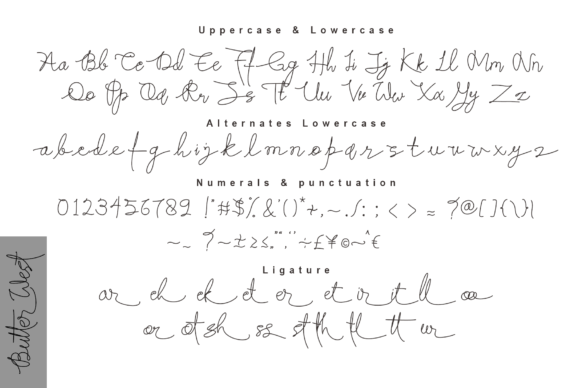 Uppercase & Lowercase
Aa Bb Cc Dd Ee Ff Gg Hh Ii Jj Kk Ll Mm Nn
Oo Pp Qq Rr Ss Tt Uu Vv Ww Xx Yy Zz
Alternates Lowercase
a b c d e f g h i j k l m n o p q r s t u v w x y z
Numerals & punctuation
0 1 2 3 4 5 6 7 8 9 ! " # $ % & ' ( ) * + , - . / : ; < > = ? @ [ ] { \ } |
Ligature
ar ch ck ct er et ir it ll oo
or ot sh ss st th tl tt ur
Butter West